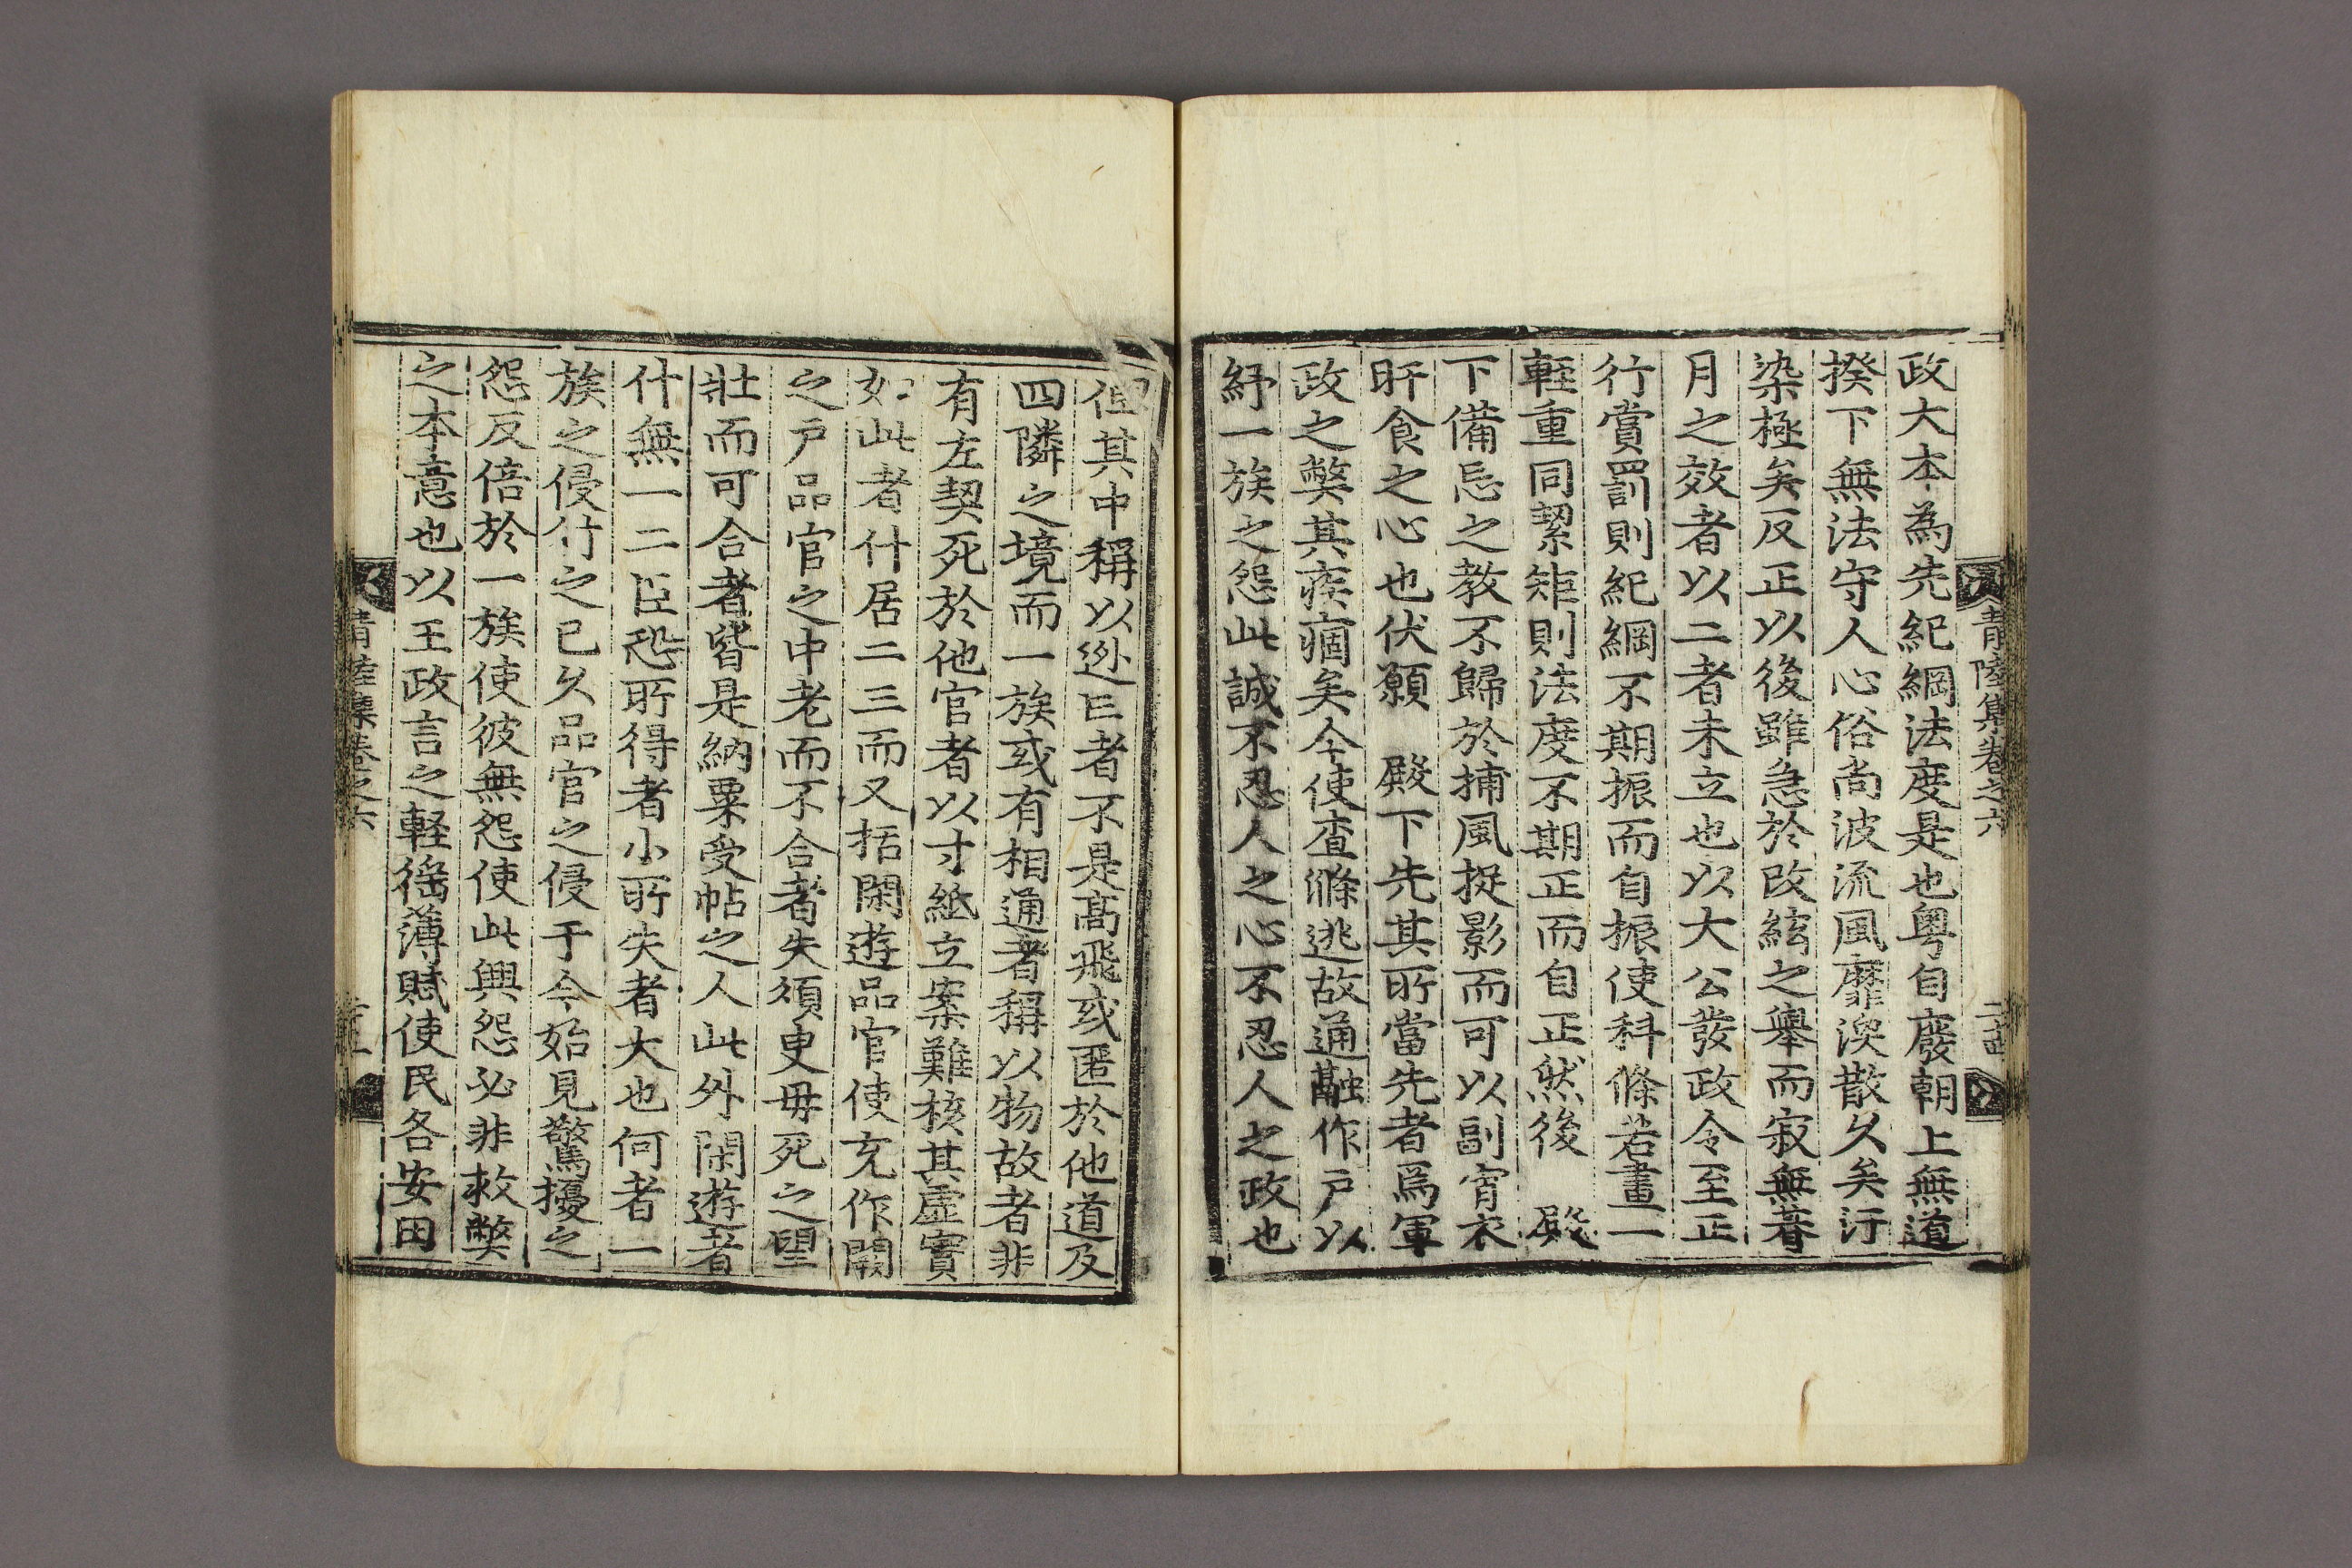 青陸集卷之六
政大本為先紀綱法度是也粤自廢朝上無道
揆下無法守人心俗尚波流風靡渙散久矣汙
染極矣反正以後雖急於改絃之舉而寂無朞
月之效者以二者未立也以大公發政令至正
行賞罰則紀綱不期振而自振使科條若畫一
輕重同絜矩則法度不期正而自正然後 殿
下備忌之教不歸於捕風捉影而可以副宵衣
旰食之心也伏願 殿下先其所當先者爲軍
政之獘其疾痼矣今使査滌逃故通融作戶以
紓一族之怨此誠不忍人之心不忍人之政也
但其中稱以逃亡者不是高飛或匿於他道及
四隣之境而一族或有相通者稱以物故者非
有左契死於他官者以寸紙立案難核其虛實
如此者什居二三而又括閑遊品官使充作闕
之戶品官之中老而不合者失須臾毋死之望
壯而可合者皆是納粟受帖之人此外閑遊者
什無一二臣恐所得者小所失者大也何者一
族之侵行之已久品官之侵于今始見驚擾之
怨反倍於一族使彼無怨使此興怨必非救獘
之本意也以王政言之輕徭薄賦使民各安田
青陸集卷之六